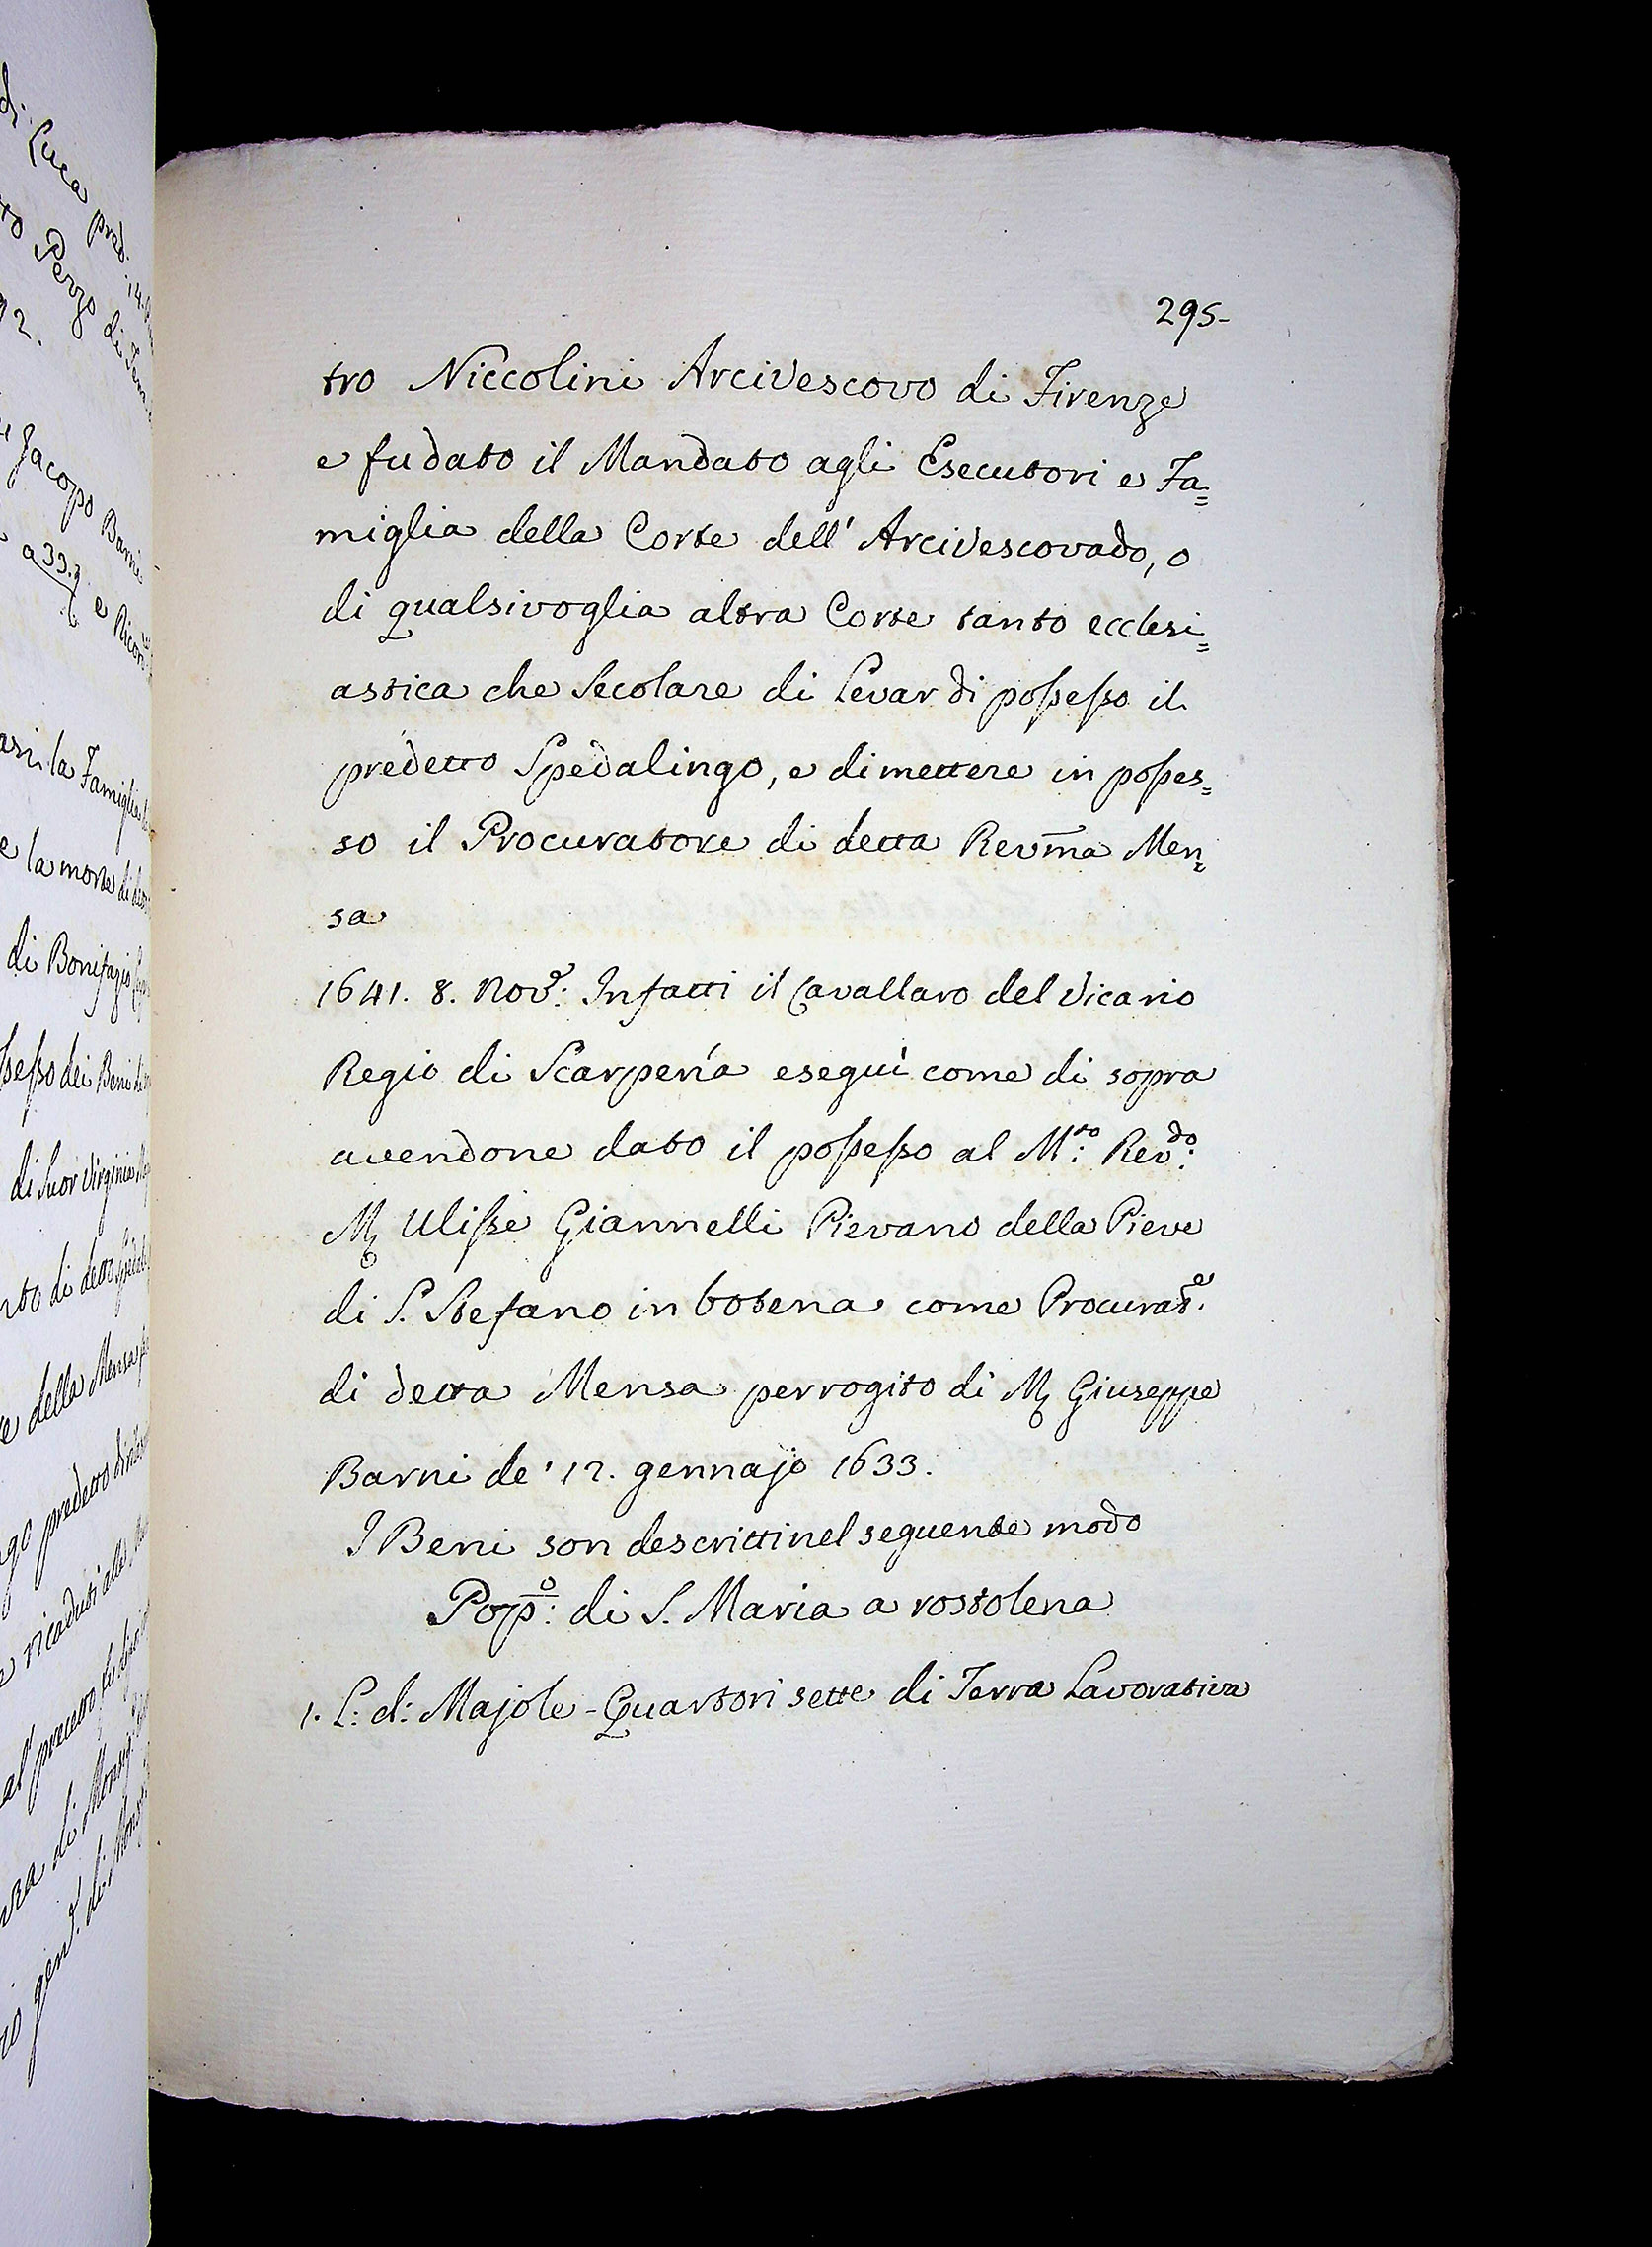 di Luca pred. 14.
Pezzo di
92.
Jacopo Barni
a 33.
la Famiglia
e la morte di
di Bonifazio
possesso dei Beni
di Suor Virginia
di detto
e della Mensa
predetto
ricaduti alla
al precetto
di Monsig.
gen.
295-
tro Niccolini Arcivescovo di Firenze
e fu dato il Mandato agli Esecutori e Fa=
miglia della Corte dell' Arcivescovado, o
di qualsivoglia altra Corte tanto ecclesi=
astica che Secolare di Levar di possesso il
predetto Spedalingo, e di mettere in posses=
so il Procuratore di detta Revm̅a Men=
sa
1641. 8. Nov.e: Infatti il Cavallaro del Vicario
Regio di Scarperia eseguì come di sopra
avendone dato il possesso al M.to: Rev.do:
M̃ Ulisse Giannelli Pievano della Pieve
di S. Stefano in botena come Procurat.e
di detta Mensa per rogito di M̃ Giuseppe
Barni de' 12. gennajo 1633.
I Beni son descritti nel seguente modo
Pop.o: di S. Maria a rostolena
1. L: d: Majole - Quartori sette di Terra Lavorativa